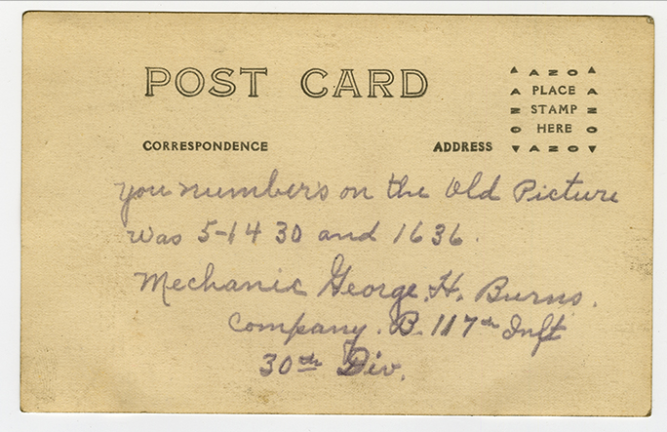 POST CARD
AZO
PLACE
STAMP
HERE
AZO
CORRESPONDENCE
ADDRESS
you numbers on the Old Picture
was 5-1430 and 1636.
Mechanic George. H. Burns.
Company. B. 117th Inft
30th Div.